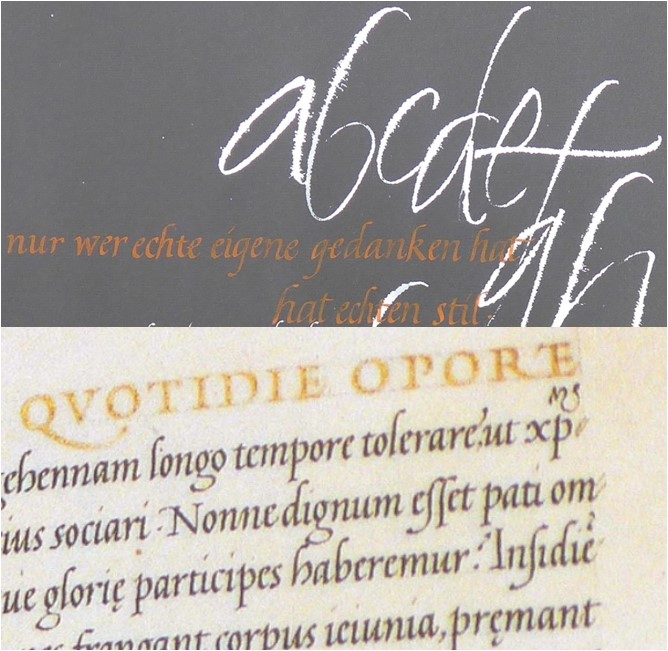 abcdef
gh
nur wer echte eigene gedanken hat
hat echten stil
QVOTIDIE OPORTE
gehennam longo tempore tolerare, ut xp̄
ius sociari. Nonne dignum eſſet pati om
ue glorię participes haberemur? Inſidię
frangant corpus ieiunia, pręmant